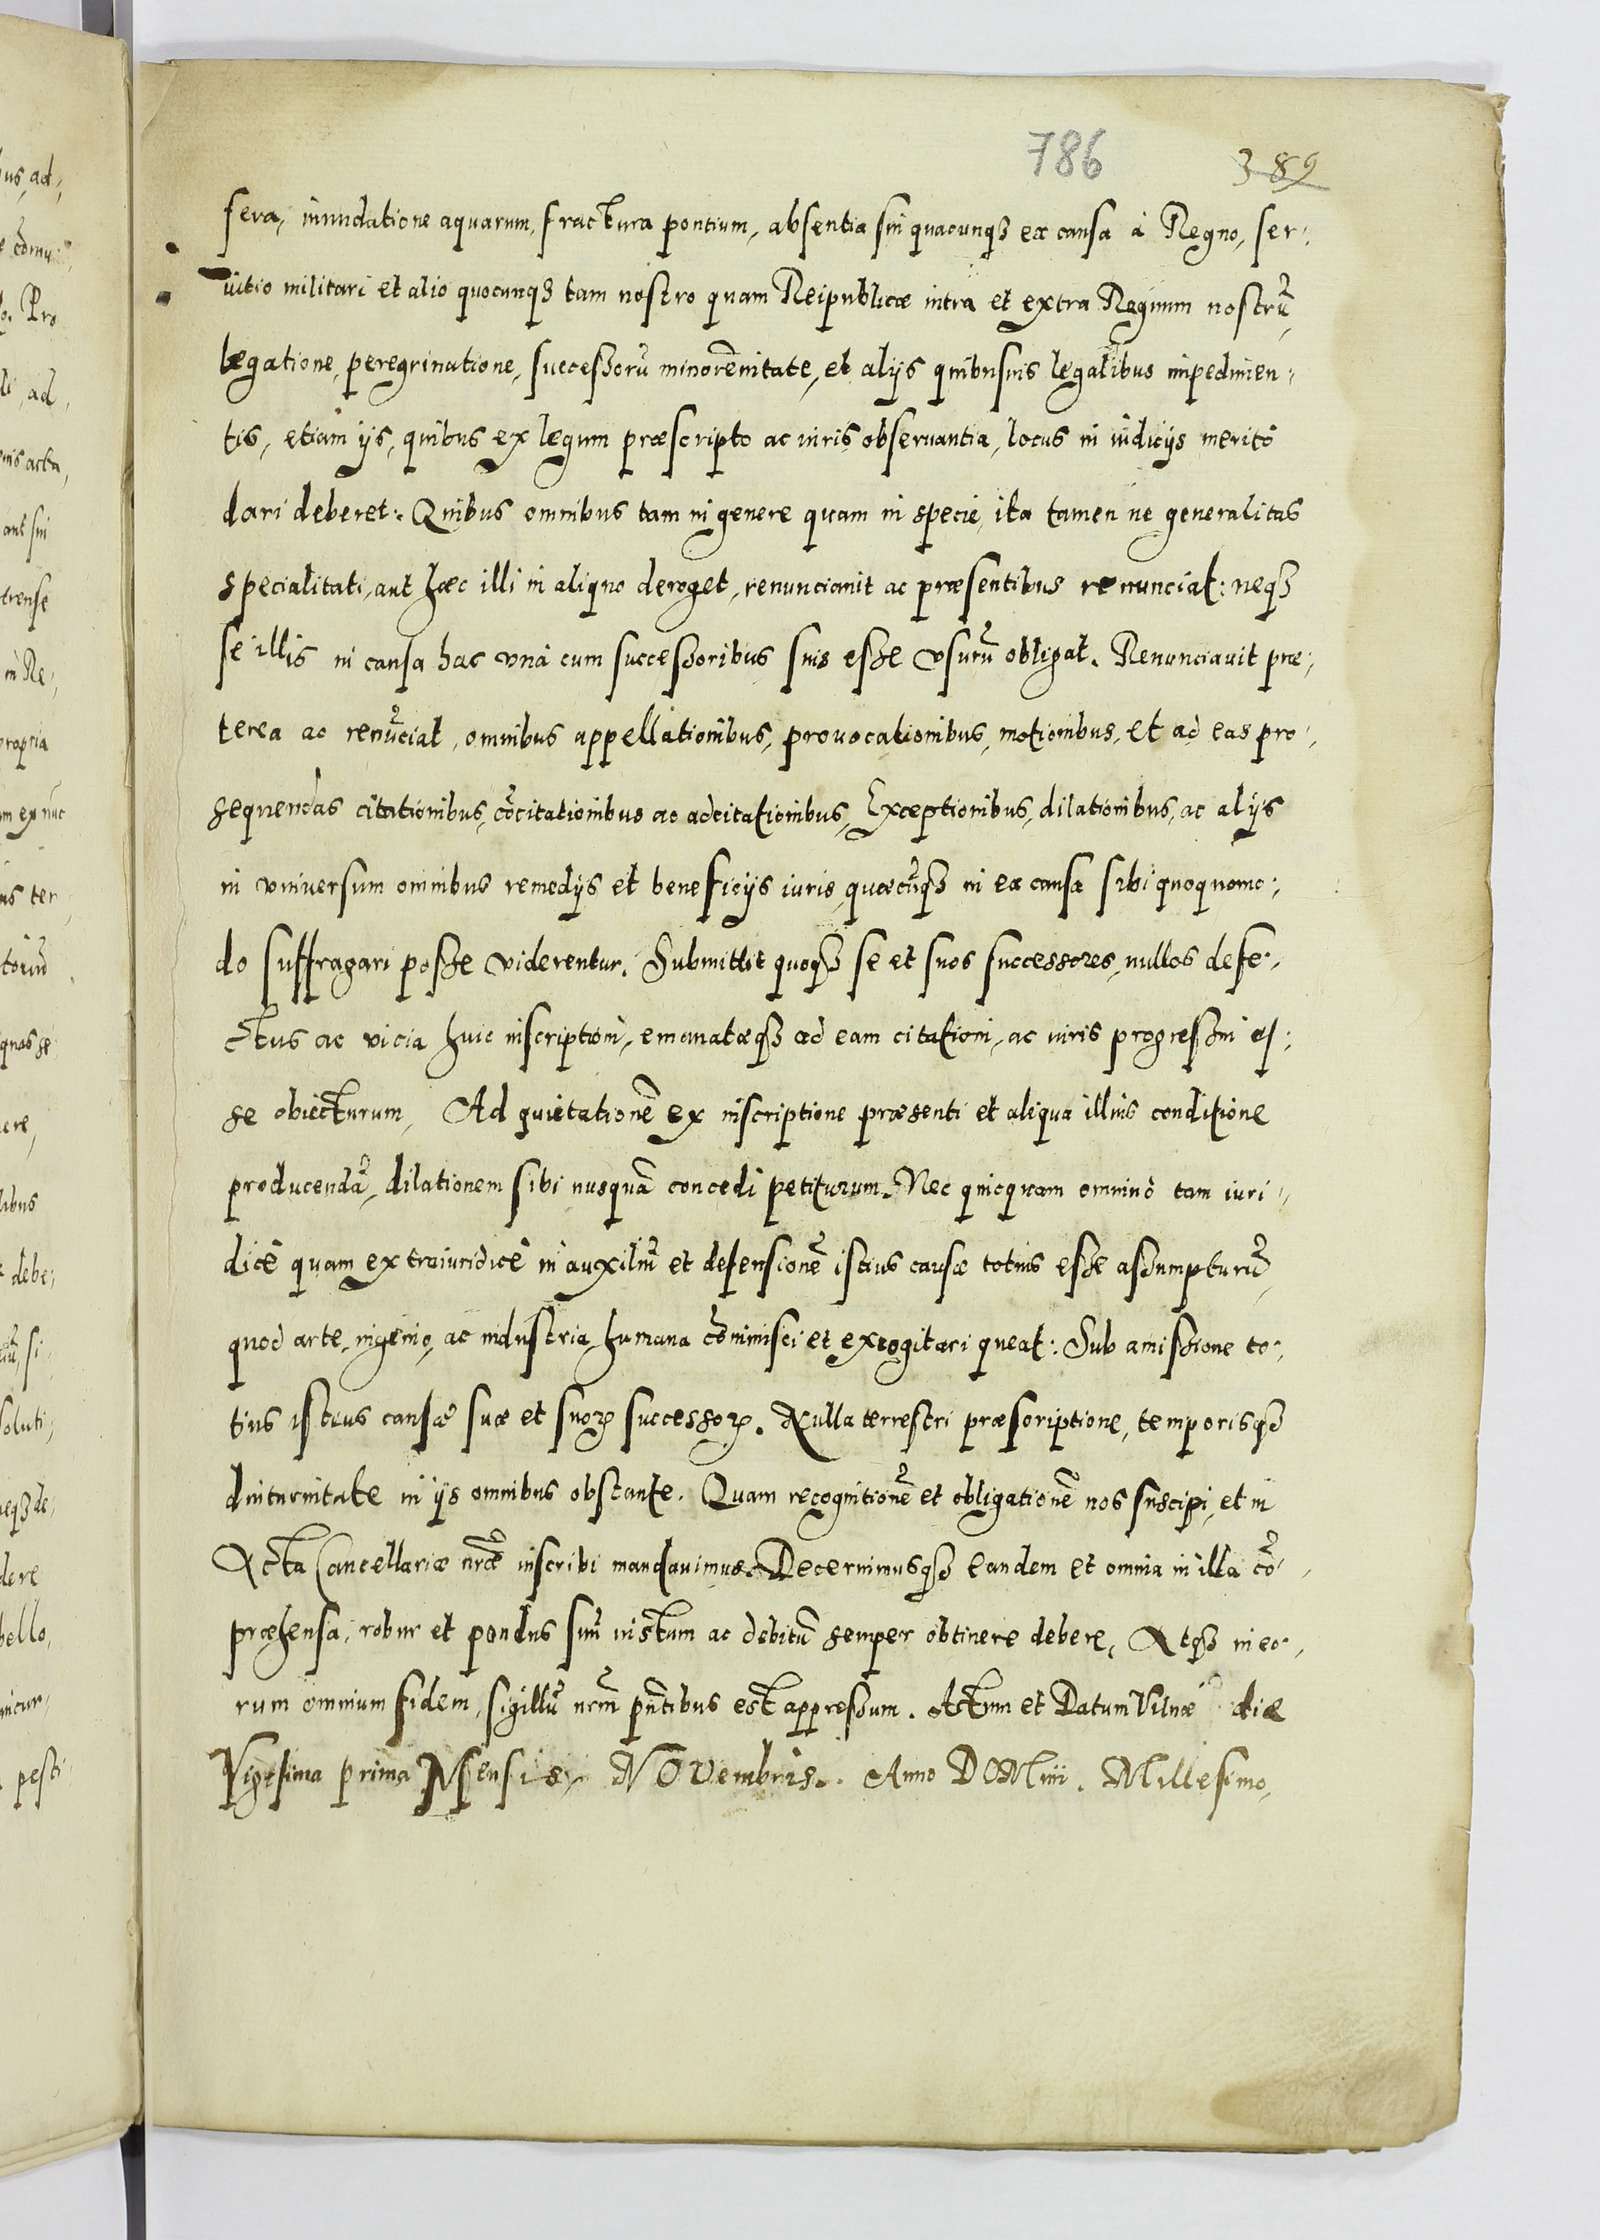 786 389
fera, inundatione aquarum, fractura pontium, absentia sui quacunqȝ ex causa à Regno, ser-
uitio militari et alio quocunqȝ tam nostro quam Reipublicæ intra et extra Regnum nostrũ,
legatione, peregrinatione, successorũ minorẽnitate, et alijs quibusuis legalibus impedimen-
tis, etiam ijs, quibus ex legum præscripto ac iuris obseruantia, locus in iudicijs meritò
dari deberet: Quibus omnibus tam in genere quam in specie, ita tamen ne generalitas
specialitati, aut hæc illi in aliquo deroget, renunciauit ac præsentibus renunciat: neqȝ
se illis in causa hac vnà cum successoribus suis esse vsurũ obligat. Renunciauit præ-
terea ac renũciat, omnibus appellationibus, prouocationibus, motionibus, et ad eas pro-
sequendas citationibus, cõcitationibus ac adcitationibus, Exceptionibus, dilationibus, ac alijs
in vniuersum omnibus remedijs et beneficijs iuris, quæcũqȝ in ea causa sibi quoquomo-
do suffragari posse viderentur. Submittit quoqȝ se et suos successores, nullos defe-
ctus ac vicia huic inscriptioni, emanatæqȝ ad eam citationi, ac iuris progressui es-
se obiecturum, Ad quietationẽ ex inscriptione præsenti et aliqua illius conditione
producendã, dilationem sibi nusquã concedi petiturum. Nec quicquam omninò tam iuri-
dicè quam extraiuridicè in auxiliũ et defensionẽ istius causæ totius esse assumpturũ,
quod arte, ingenio, ac industria humana cõminisci et excogitari queat: Sub amissione to-
tius istius causæ suæ et suoꝝ successoꝝ. Nulla terrestri præscriptione, temporisqȝ
diuturnitate in ijs omnibus obstante. Quam recognitionẽ et obligationẽ nos suscipi, et in
Acta Cancellariæ nr̃æ inscribi mandauimus. Decernimusqȝ eandem et omnia in illa cõ-
præhensa, robur et pondus suũ iustum ac debitũ semper obtinere debere, Atqȝ in eo-
rum omnium fidem, sigillũ nr̃m pñtibus est appressum. Actum et Datum Vilnæ die
Vigesima prima Mensis Nouembris. Anno DOMini. Millesimo,